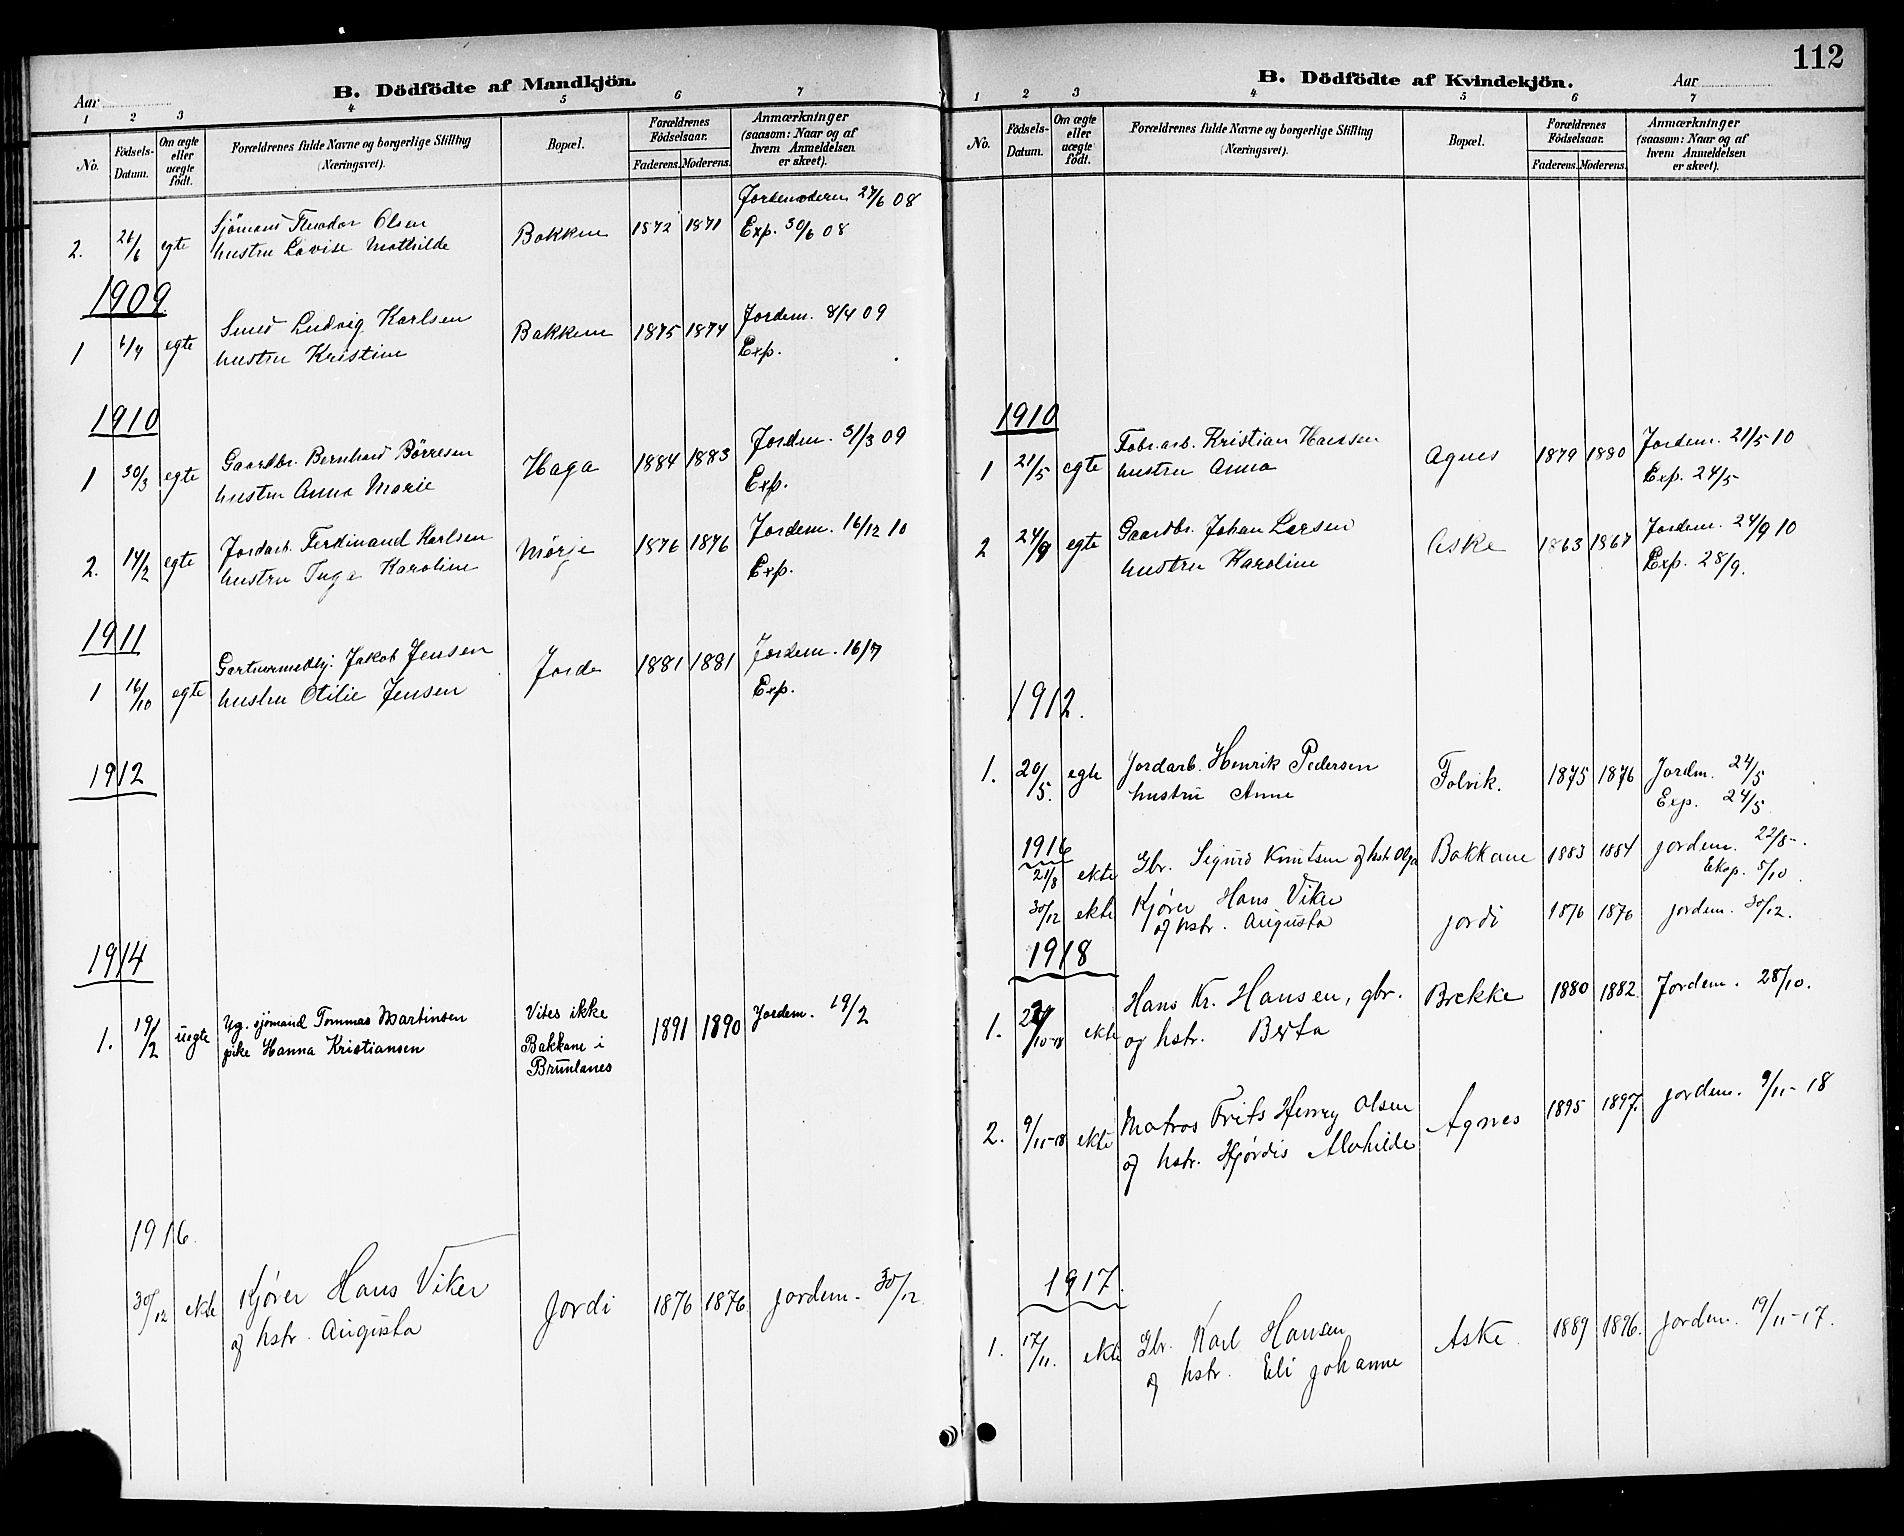 B. Dödfödte af Mandkjön.
Aar
1 2 3 4 5 6 7
No.
Födsels-Datum.
Om ægte eller uægte födt.
Forældrenes fulde Navne og borgerlige Stilling
(Næringsvei).
Bopæl.
Forældrenes Födselsaar.
Faderens. Moderens.
Anmærkninger
(saasom: Naar og af
hvem Anmeldelsen
er skeet).
2. 26/6 egte Sjömand Theodor Olsen Bakken 1872 1871 Jordemoderen 27/6 08
hustru Lovise Mathilde Exp. 30/6 08
1909
1 /4 egte Smed Ludvig Karlsen Bakken 1875 1874 Jordem. 8/4 09
hustru Kristine Exp.
1910
1 30/3 egte Gaardbr. Bernhard Börresen Haga 1884 1883 Jordem. 31/3 09
hustru Anna Marie Exp.
2. 14/2 egte Jordarb. Ferdinand Karlsen Mörje 1876 1876 Jordem. 16/12 10
hustru Inga Karoline Exp.
1911
1 16/10 egte Gartnermedhj. Jakob Jensen Jorde 1881 1881 Jordem. 16/7
hustru Otilie Jensen Exp.
1912
1914
1. 19/2 uegte Ug. sjömand Tommas Martinsen Vites ikke 1891 1890 Jordem. 19/2
pike Hanna Kristiansen Bakkane i
Brunlanes
1916
30/12 ekte Kjörer Hans Viker Jordi 1876 1876 jordem. 30/12
og hstr. Augusta
112
B. Dödfödte af Kvindekjön.
Aar
1 2 3 4 5 6 7
No.
Födsels-Datum.
Om ægte eller uægte födt.
Forældrenes fulde Navne og borgerlige Stilling
(Næringsvei).
Bopæl.
Forældrenes Födselsaar.
Faderens. Moderens.
Anmærkninger
(saasom: Naar og af
hvem Anmeldelsen
er skeet).
1910
1 21/5 egte Fabr.arb. Kristian Hansen Agnes 1879 1880 Jordem. 21/5 10
hustru Anna Exp. 24/5
2 24/9 egte Gaardbr. Johan Larsen Aske 1863 1867 Jordem. 24/9 10
hustru Karoline Exp. 28/9.
1912.
1. 20/5. egte Jordarb. Henrik Pedersen Folvik. 1875 1876 Jordm. 24/5
hustru Anne Exp. 24/5
1916
21/8 ekte Gbr. Sigurd Knutsen og hst. Olga Bakkane 1883 1884 jordem. 22/8-.
Eksp. 5/10.
30/12 ekte Kjörer Hans Viker jordi 1876 1876 jordem. 30/12.
og hstr. Augusta
1918
1. /10-18 ekte Hans Kr. Hansen, gbr. Brekke 1880 1882. Jordem. 28/10.
og hstr. Berta
2. 9/11-18 ekte Matros Frits Henry Olsen Agnes 1895 1897. jordem. 9/11-18
og hstr. Hjördis Alvhilde
1917.
1. 17/11. ekte Gbr. Karl Hansen Aske. 1889 1896. jordem. 19/11-17.
og hstr. Eli Johanne